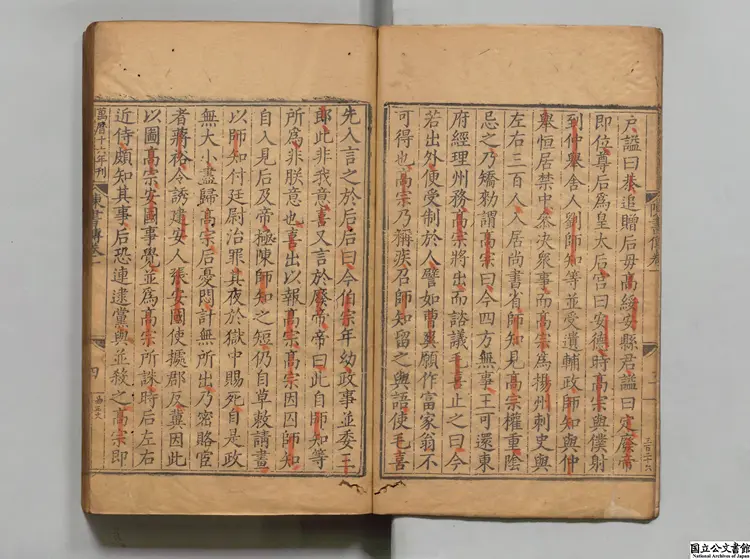 戶謚曰恭追贈后母高綏安縣君謚曰定廢帝
即位尊后爲皇太后宮曰安德時高宗與僕射
到仲舉舍人劉師知等並受遺輔政師知與仲
舉恒居禁中參決衆事而高宗爲揚州刺史與
左右三百人入居尚書省師知見高宗權重陰
忌之乃矯勅謂高宗曰今四方無事王可還東
府經理州務高宗將出而諮議毛喜止之曰今
若出外便受制於人譬如曹爽願作富家翁不
可得也高宗乃稱疾召師知留之與語使毛喜
先入言之於后后曰今伯宗年幼政事並委二
郎此非我意喜又言於廢帝帝曰此自師知等
所爲非朕意也喜出以報高宗高宗因囚師知
自入見后及帝極陳師知之短仍自草敕請畫
以師知付廷尉治罪其夜於獄中賜死自是政
無大小盡歸高宗后憂悶計無所出乃密賂宦
者蔣裕令誘建安人張安國使據郡反冀因此
以圖高宗安國事覺並爲高宗所誅時后左右
近侍頗知其事后恐連逮黨與並殺之高宗即
萬曆十六年刊
陳書傳卷一
四
国立公文書館
National Archives of Japan